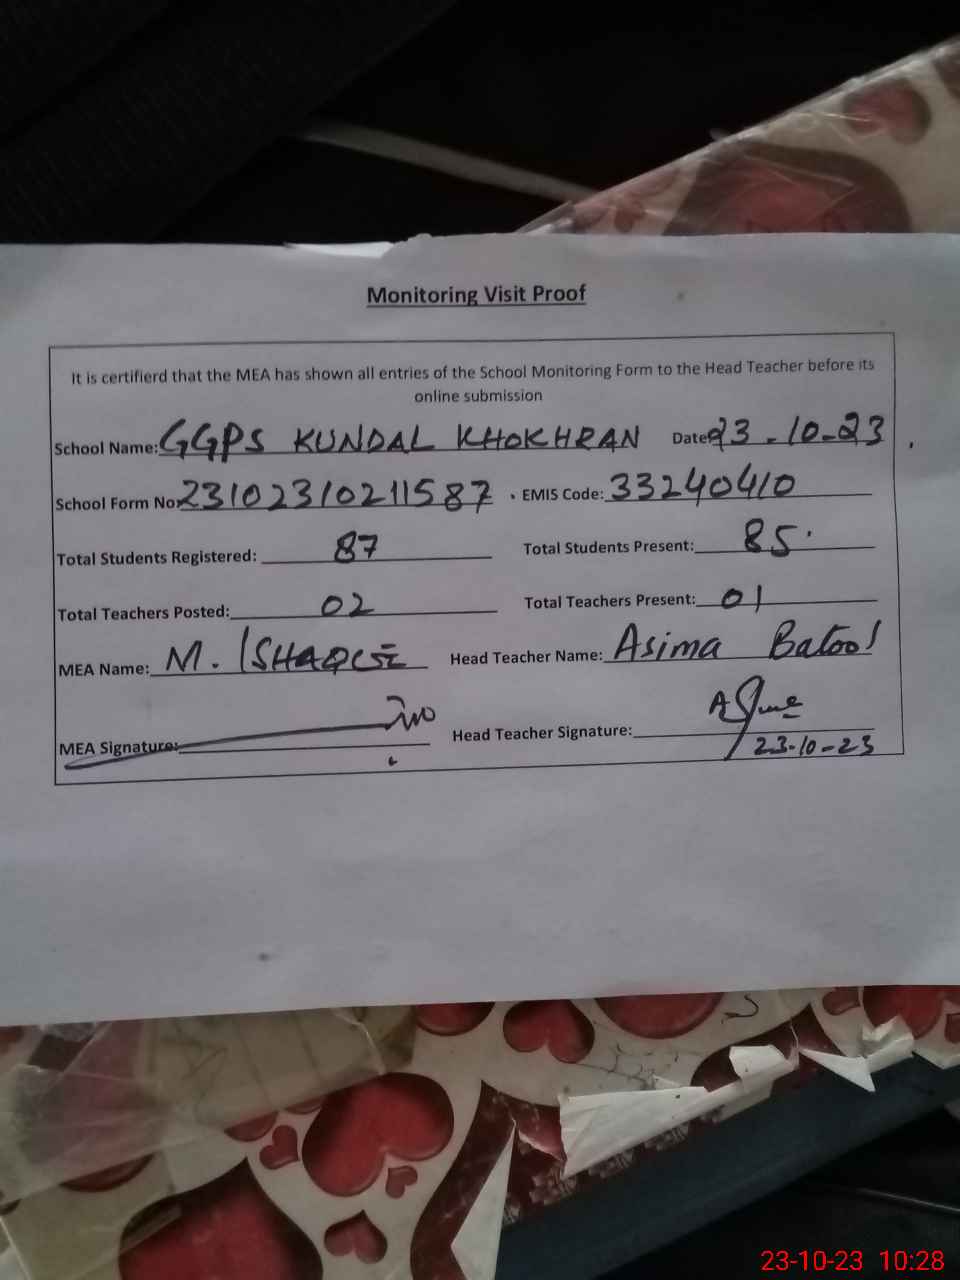 Monitoring Visit Proof
It is certifierd that the MEA has shown all entries of the School Monitoring Form to the Head Teacher before its
online submission
School Name: GGPS KUNDAL KHOKHRAN Date: 23-10-23
School Form No: 23102310211587 EMIS Code: 33240410
Total Students Registered: 87 Total Students Present: 85
Total Teachers Posted: 02 Total Teachers Present: 01
MEA Name: M. ISHAQUE Head Teacher Name: Asima Batool
MEA Signature: Head Teacher Signature:
23-10-23
23-10-23 10:28